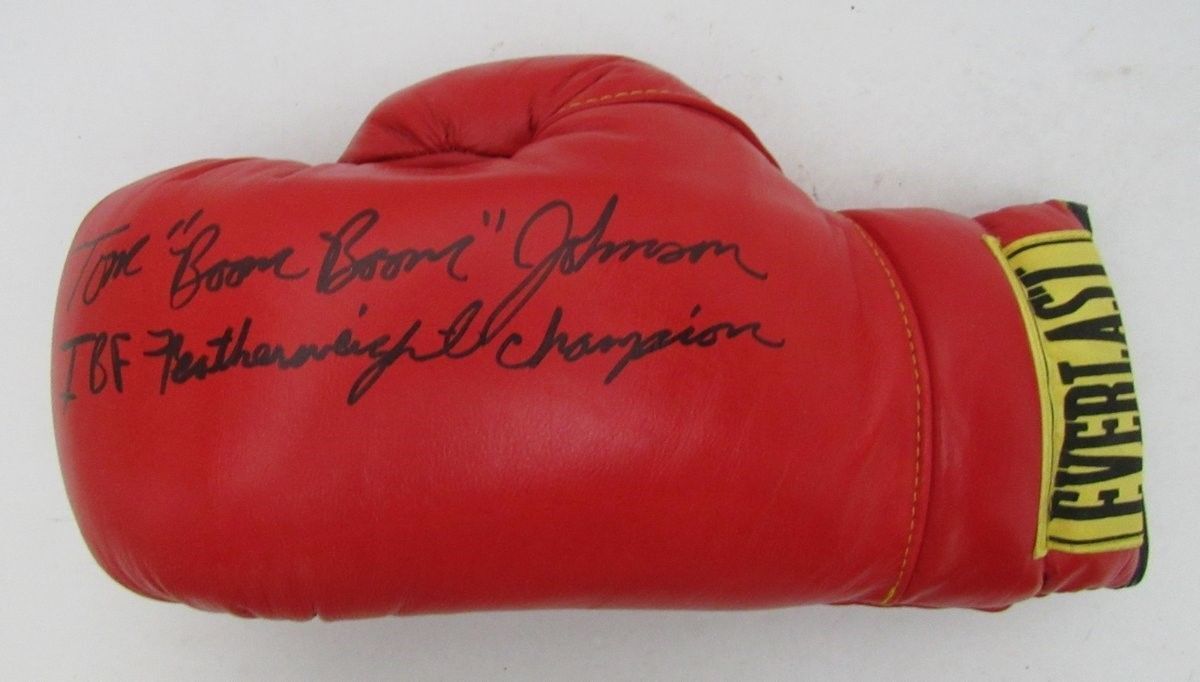 Tom "Boom Boom" Johnson
IBF Featherweight Champion
EVERLAST